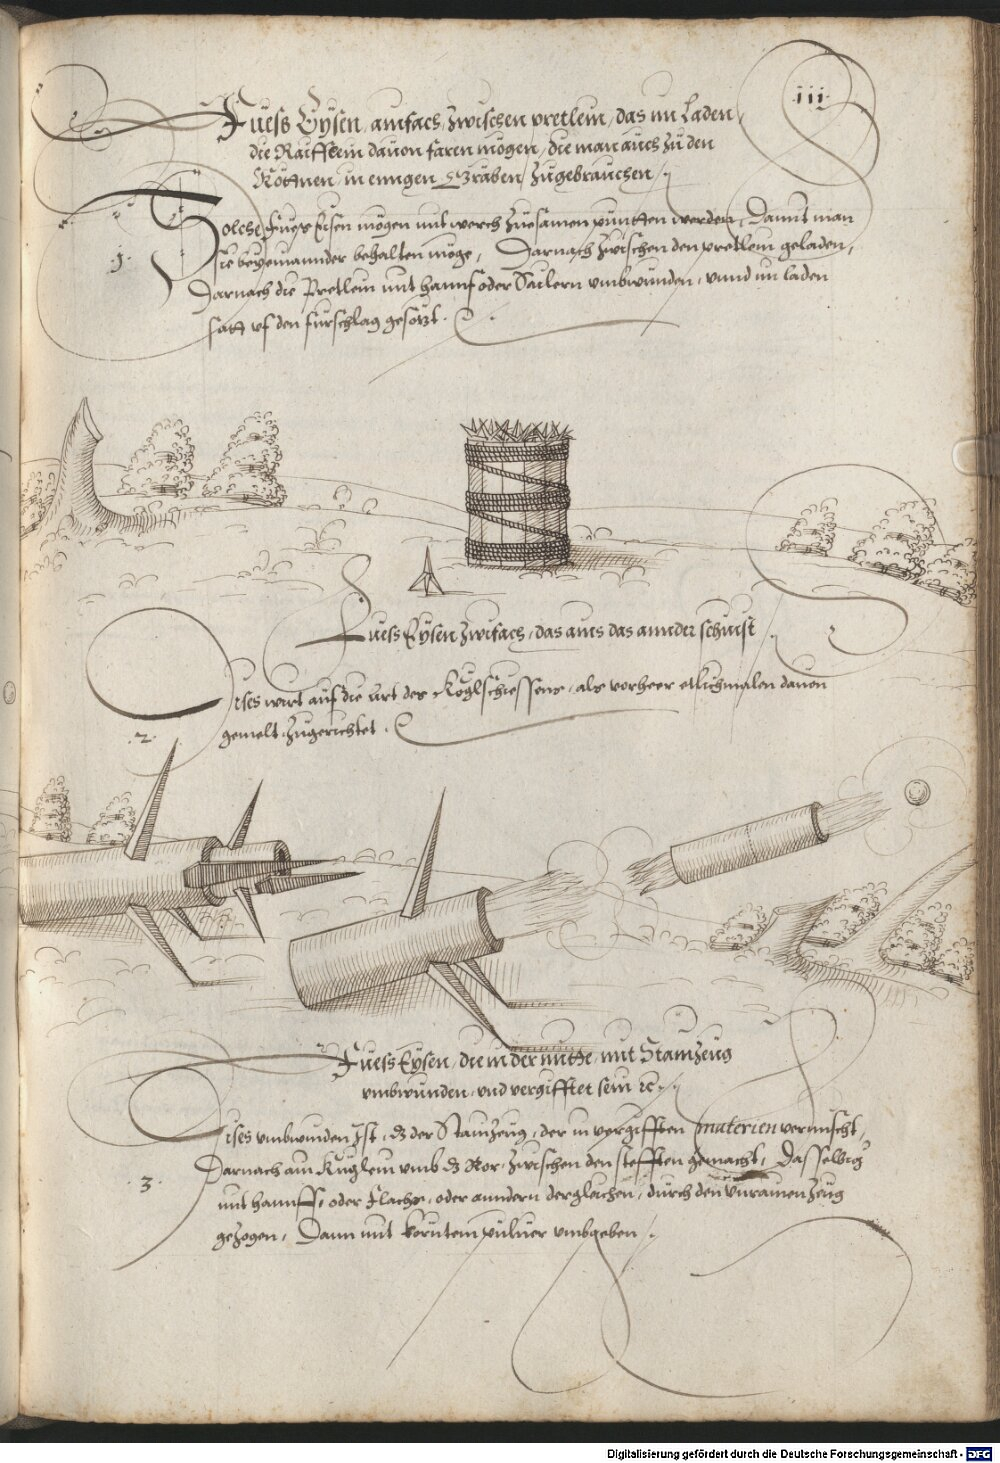 iii
Fuess Eÿsen, ainfach, zwischen pretlein, das im Laden
die Raifflein dauon faren mögen, die man auch zu den
in enngen Gräben, zugebrauchen /.
1.
Solche Fuess Eisen mögen mit werch zuesamen werden, Damit man
sie beÿeinannder behalten möge, Darnach zwischen den pretlein geladen,
Darnach die Pretlein mit hannf oder Sailern vmbwunden, vnnd im laden
satt vf den fürschlag gesötzt.
Fuess Eÿsen zwifach, das ains das annder scheüst
2.
Dises wirt auf die art des Köglschiessens, als vorheer etlichmalen dauon
gemelt zugerichtet.
Fuess Eÿsen, die in der mitte, mit Stainzeug
vmbwunden, vnd vergifftet sein ꝛc.
3.
Dises vmbwinden Ist, dz der Stainzeug, der in vergifften materien vermischt,
Darnach ain Kuglein vmb dz Ror, zwischen den stefften gemacht, Dasselbig
mit hannff oder Flachs, oder anndern dergleichen, durch den zeug
gezogen, Dann mit körntem puluer vmbgeben /.
Digitalisierung gefördert durch die Deutsche Forschungsgemeinschaft - DFG